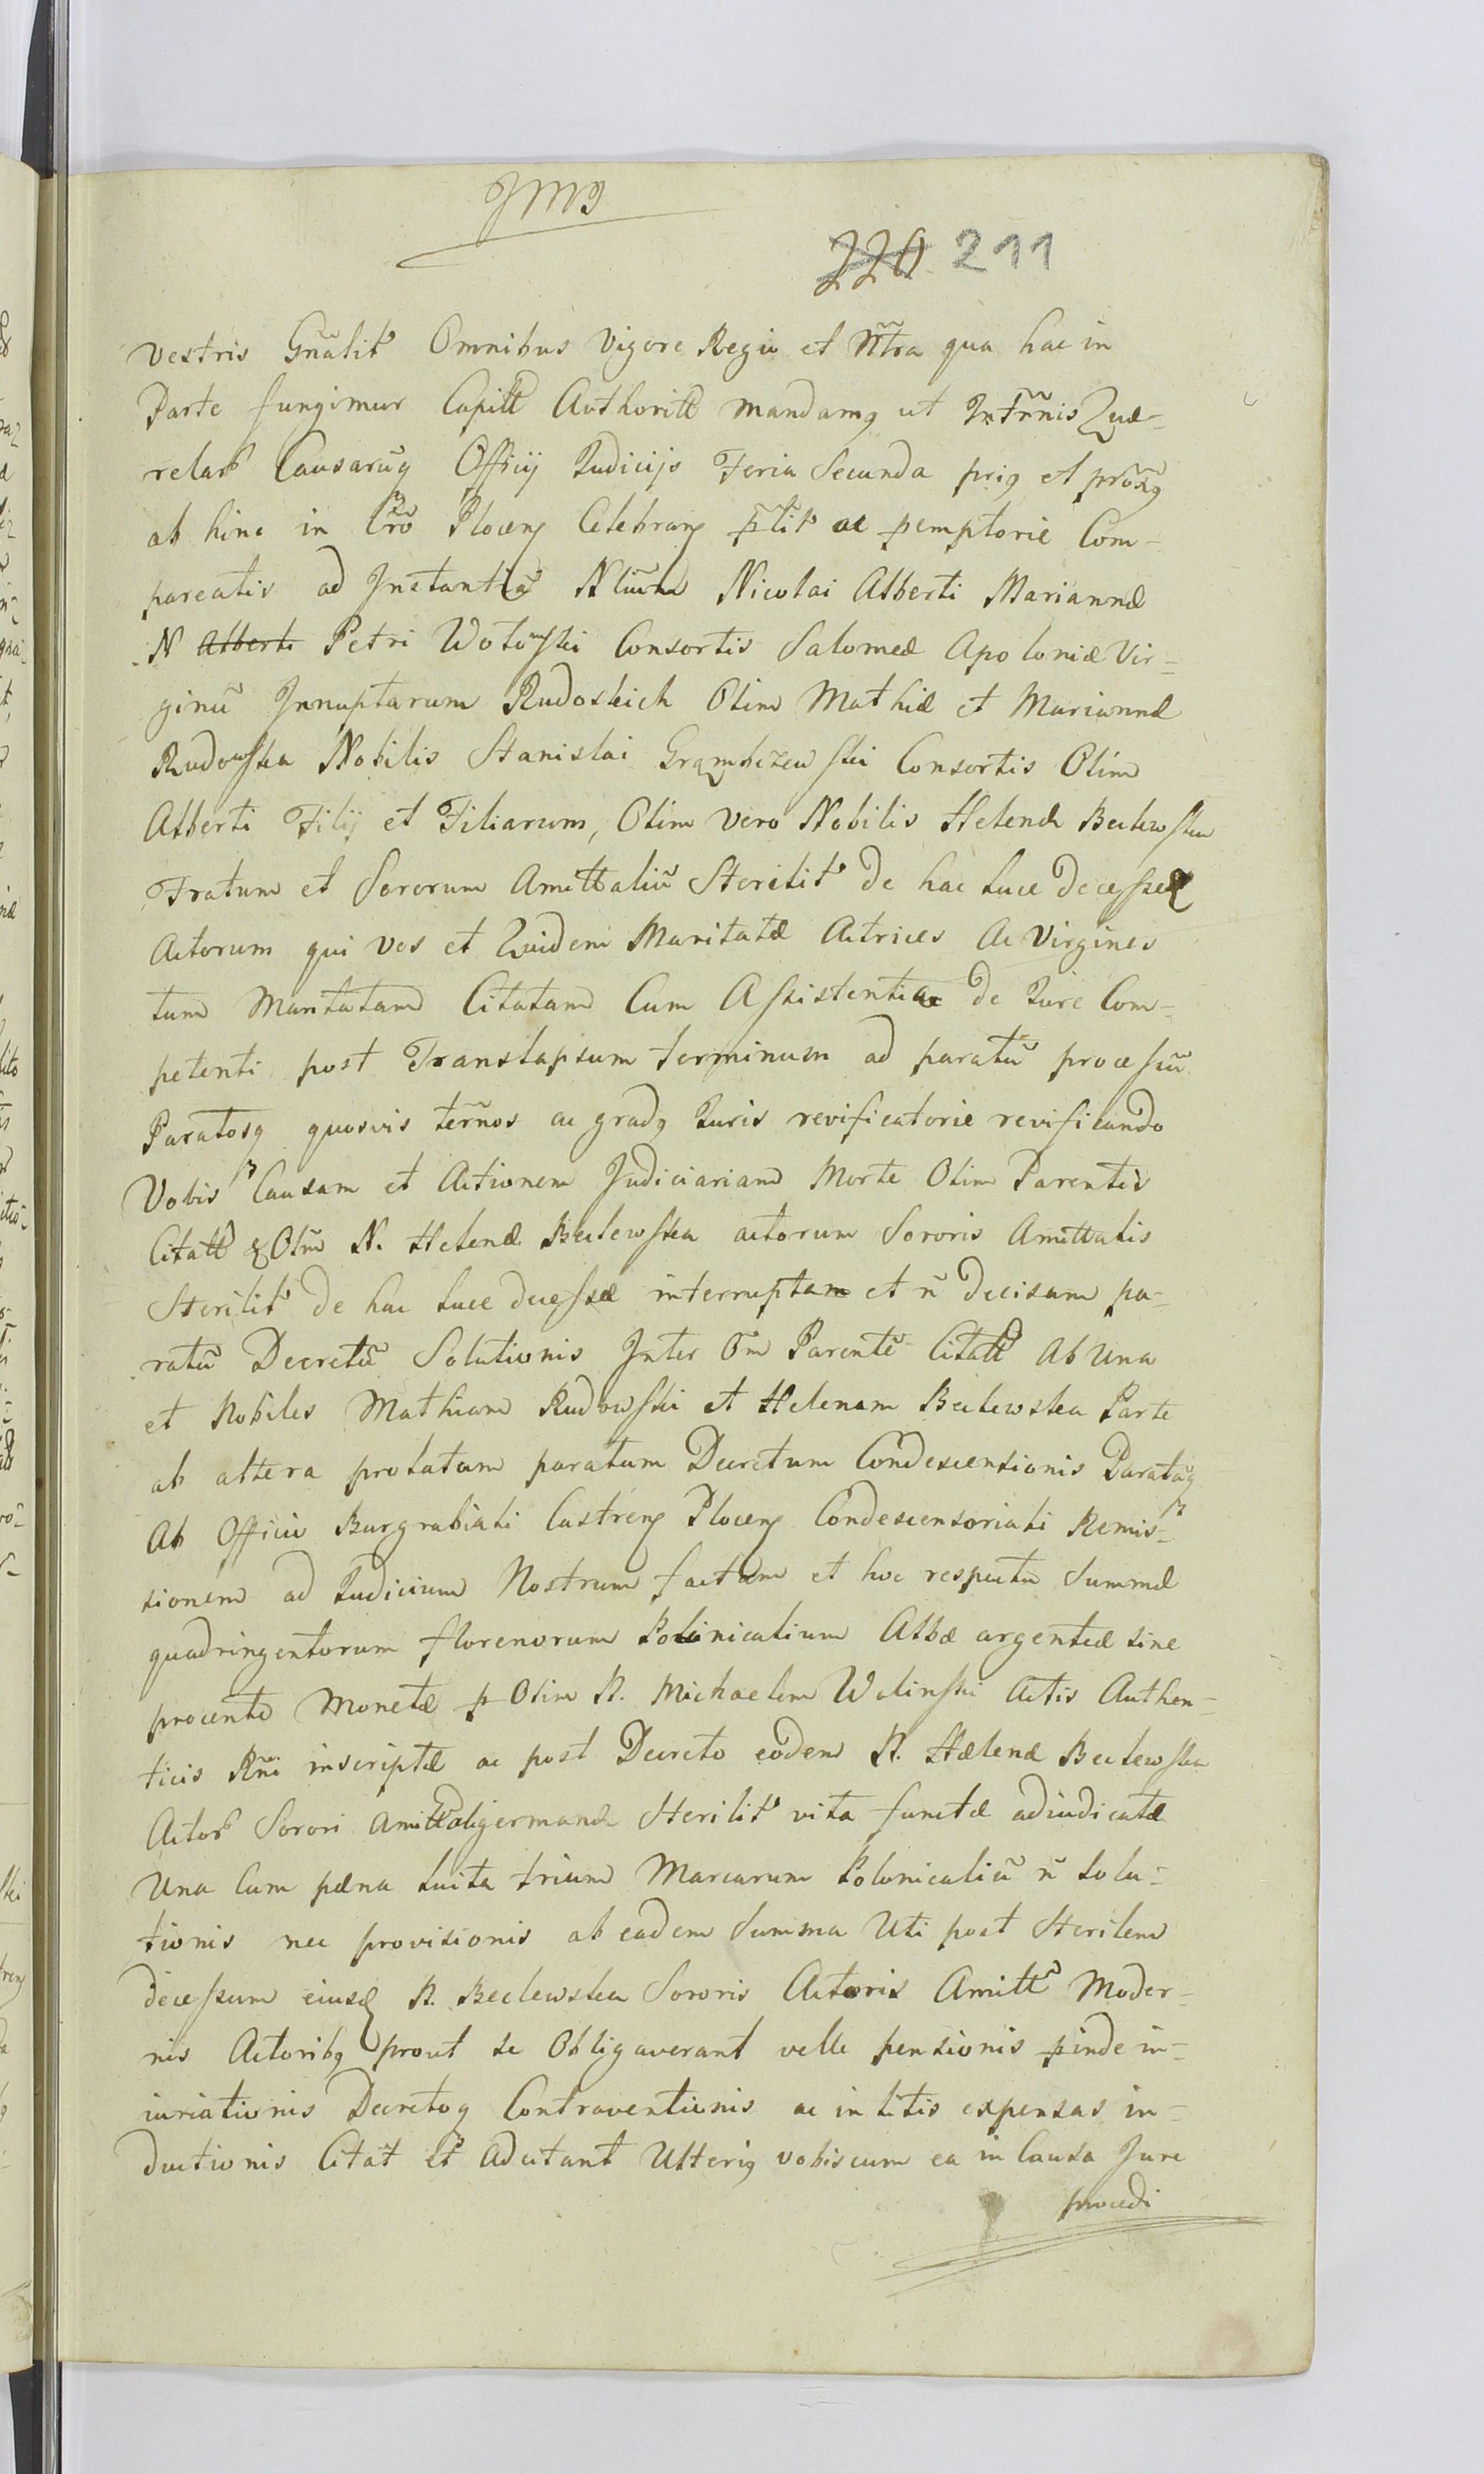 JMJ
220 211
vestris Gñalit Omnibus Vigore Regia et Ñtra qua hac in
Parte fungimur Capitł Authoritł mandamq ut In Trñnis Quæ-
relarꝫ Causarũq Officÿ Judicijs Feria Secunda priq et prõxq
ab hinc in Cr̃o Plocenꝫ Celebranꝫ p̃tlit ac pemptorie Com-
pareatis ad Instantiã Nliũm Nicolai Alberti Mariannæ
N Alberti Petri Wotowski Consortis Salomeæ Apoloniæ Vir-
ginũ Innuptarum Rudoskich Olim Mathiæ et Mariannæ
Rudowska Nobilis Stanislai Grąmbczewski Consortis Olim
Alberti Filij et Filiarum, Olim vero Nobilis Helenæ Beclewska
Fratum et Sororum Amittaliũ Sterilit de hac luce decessæ
Actorum qui vos et Quidem Maritatæ Actrices Ac Virgines
tum Maritatam Citatam Cum Assistentia de Jure Com-
petenti post Translapsum terminum ad paratũ processũ
Paratosq quosvis ter̃nos ac gradq Juris revificatorie revificando
Vobis Causam et Actionem Judiciariam Morte Olim Parentis
Citatł & Olim N. Helenæ Beclewska actorum Sororis Amittalis
Sterilit de hac luce decessæ interruptam et ñ decisam pa-
ratũ Decretũ Solutionis Inter Om̃ Parentẽ Citatł Ab Una
et Nobiles Mathiam Rudowski et Helenam Beclewska Parte
ab altera prolatam paratum Decretum Condescensionis Paratãq
Ab Officio Burgrabiali Castrenꝫ Plocenꝫ Condescensoriali Remis-
sionem ad Judicium Nostrum factam et hoc respectu Summæ
quadringentorum florenorum Polinicalium Albæ argenteæ sine
procento Monetæ p Olim N. Michaelem Wolinski Actis Authen-
ticis Rñi inscriptæ ac post Decreto eodem N. Hælenæ Beclewska
Actorꝫ Sorori amittaligermanæ Sterilit vita functæ adiudicatæ
Una Cum pæna luita trium Marcarum Polonicaliũ ñ Solu-
tionis nec provisionis ab eadem Summa Uti post Sterilem
decessum eiusd N. Beclewska Sororis Actoris Amittł Moder-
nis Actoribq prout se Obligaverant velle pensionis pinde in-
iuriationis Decretoq Contraventionis ac in litis expensas in-
ductionis Citat Et Adcitant Ulteriq vobiscum ea in Causa Jure
procedi